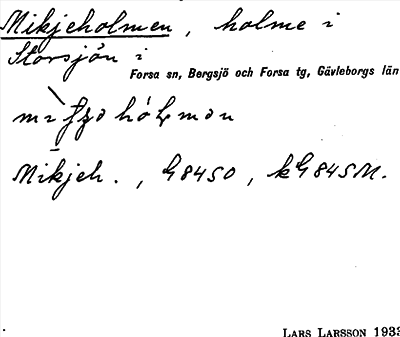 Mikjeholmen, holme i
Storsjön i
Forsa sn, Bergsjö och Forsa tg, Gävleborgs län
Mikjeh., G8450, kG845M.
LARS LARSSON 1933